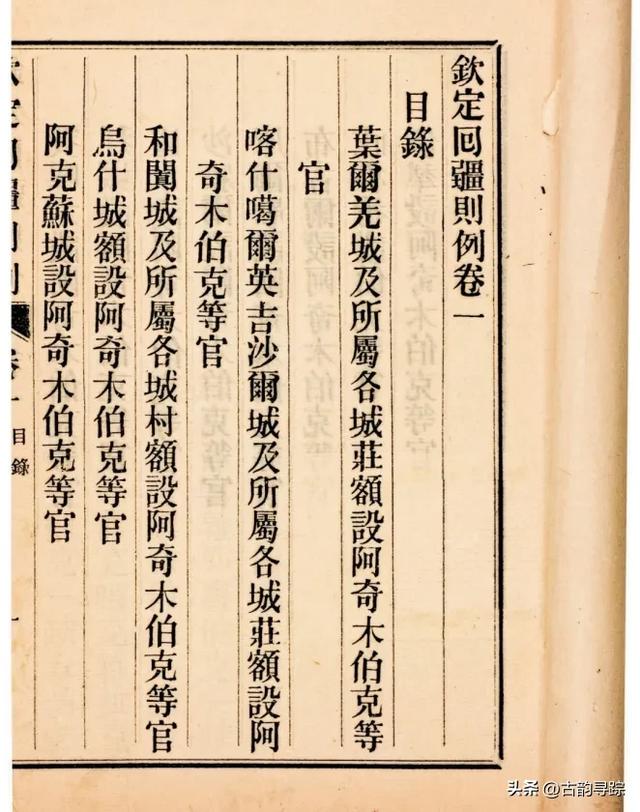 欽定回疆則例卷一
目錄
葉爾羌城及所屬各城莊額設阿奇木伯克等
官
喀什噶爾英吉沙爾城及所屬各城莊額設阿
奇木伯克等官
和闐城及所屬各城村額設阿奇木伯克等官
烏什城額設阿奇木伯克等官
阿克蘇城設阿奇木伯克等官
目錄
一
头条 @古韵寻踪